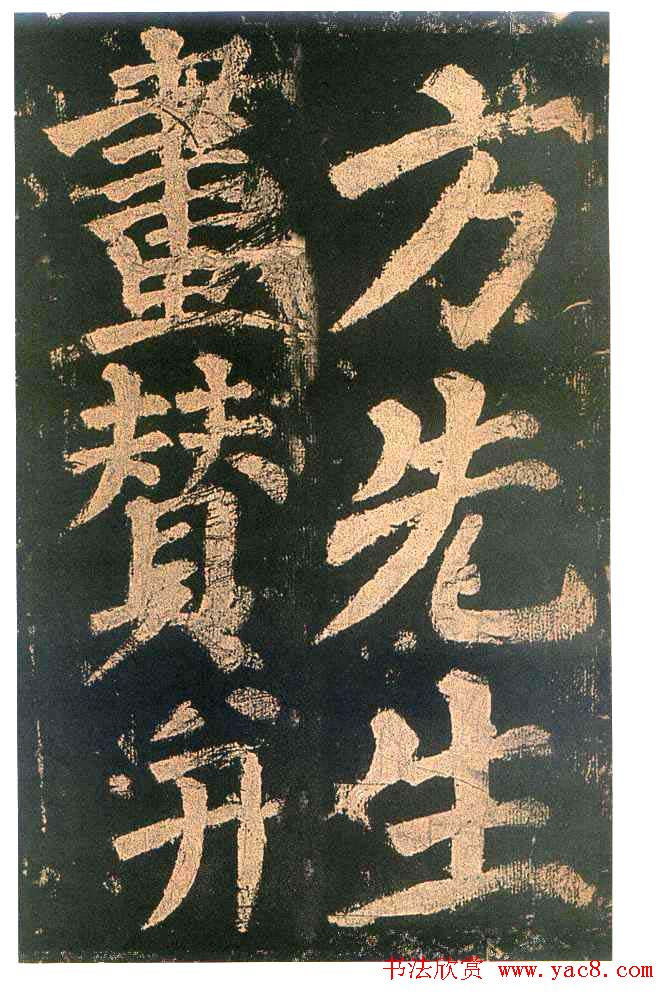 方先生
畫贊并
书法欣赏 www.yac8.com